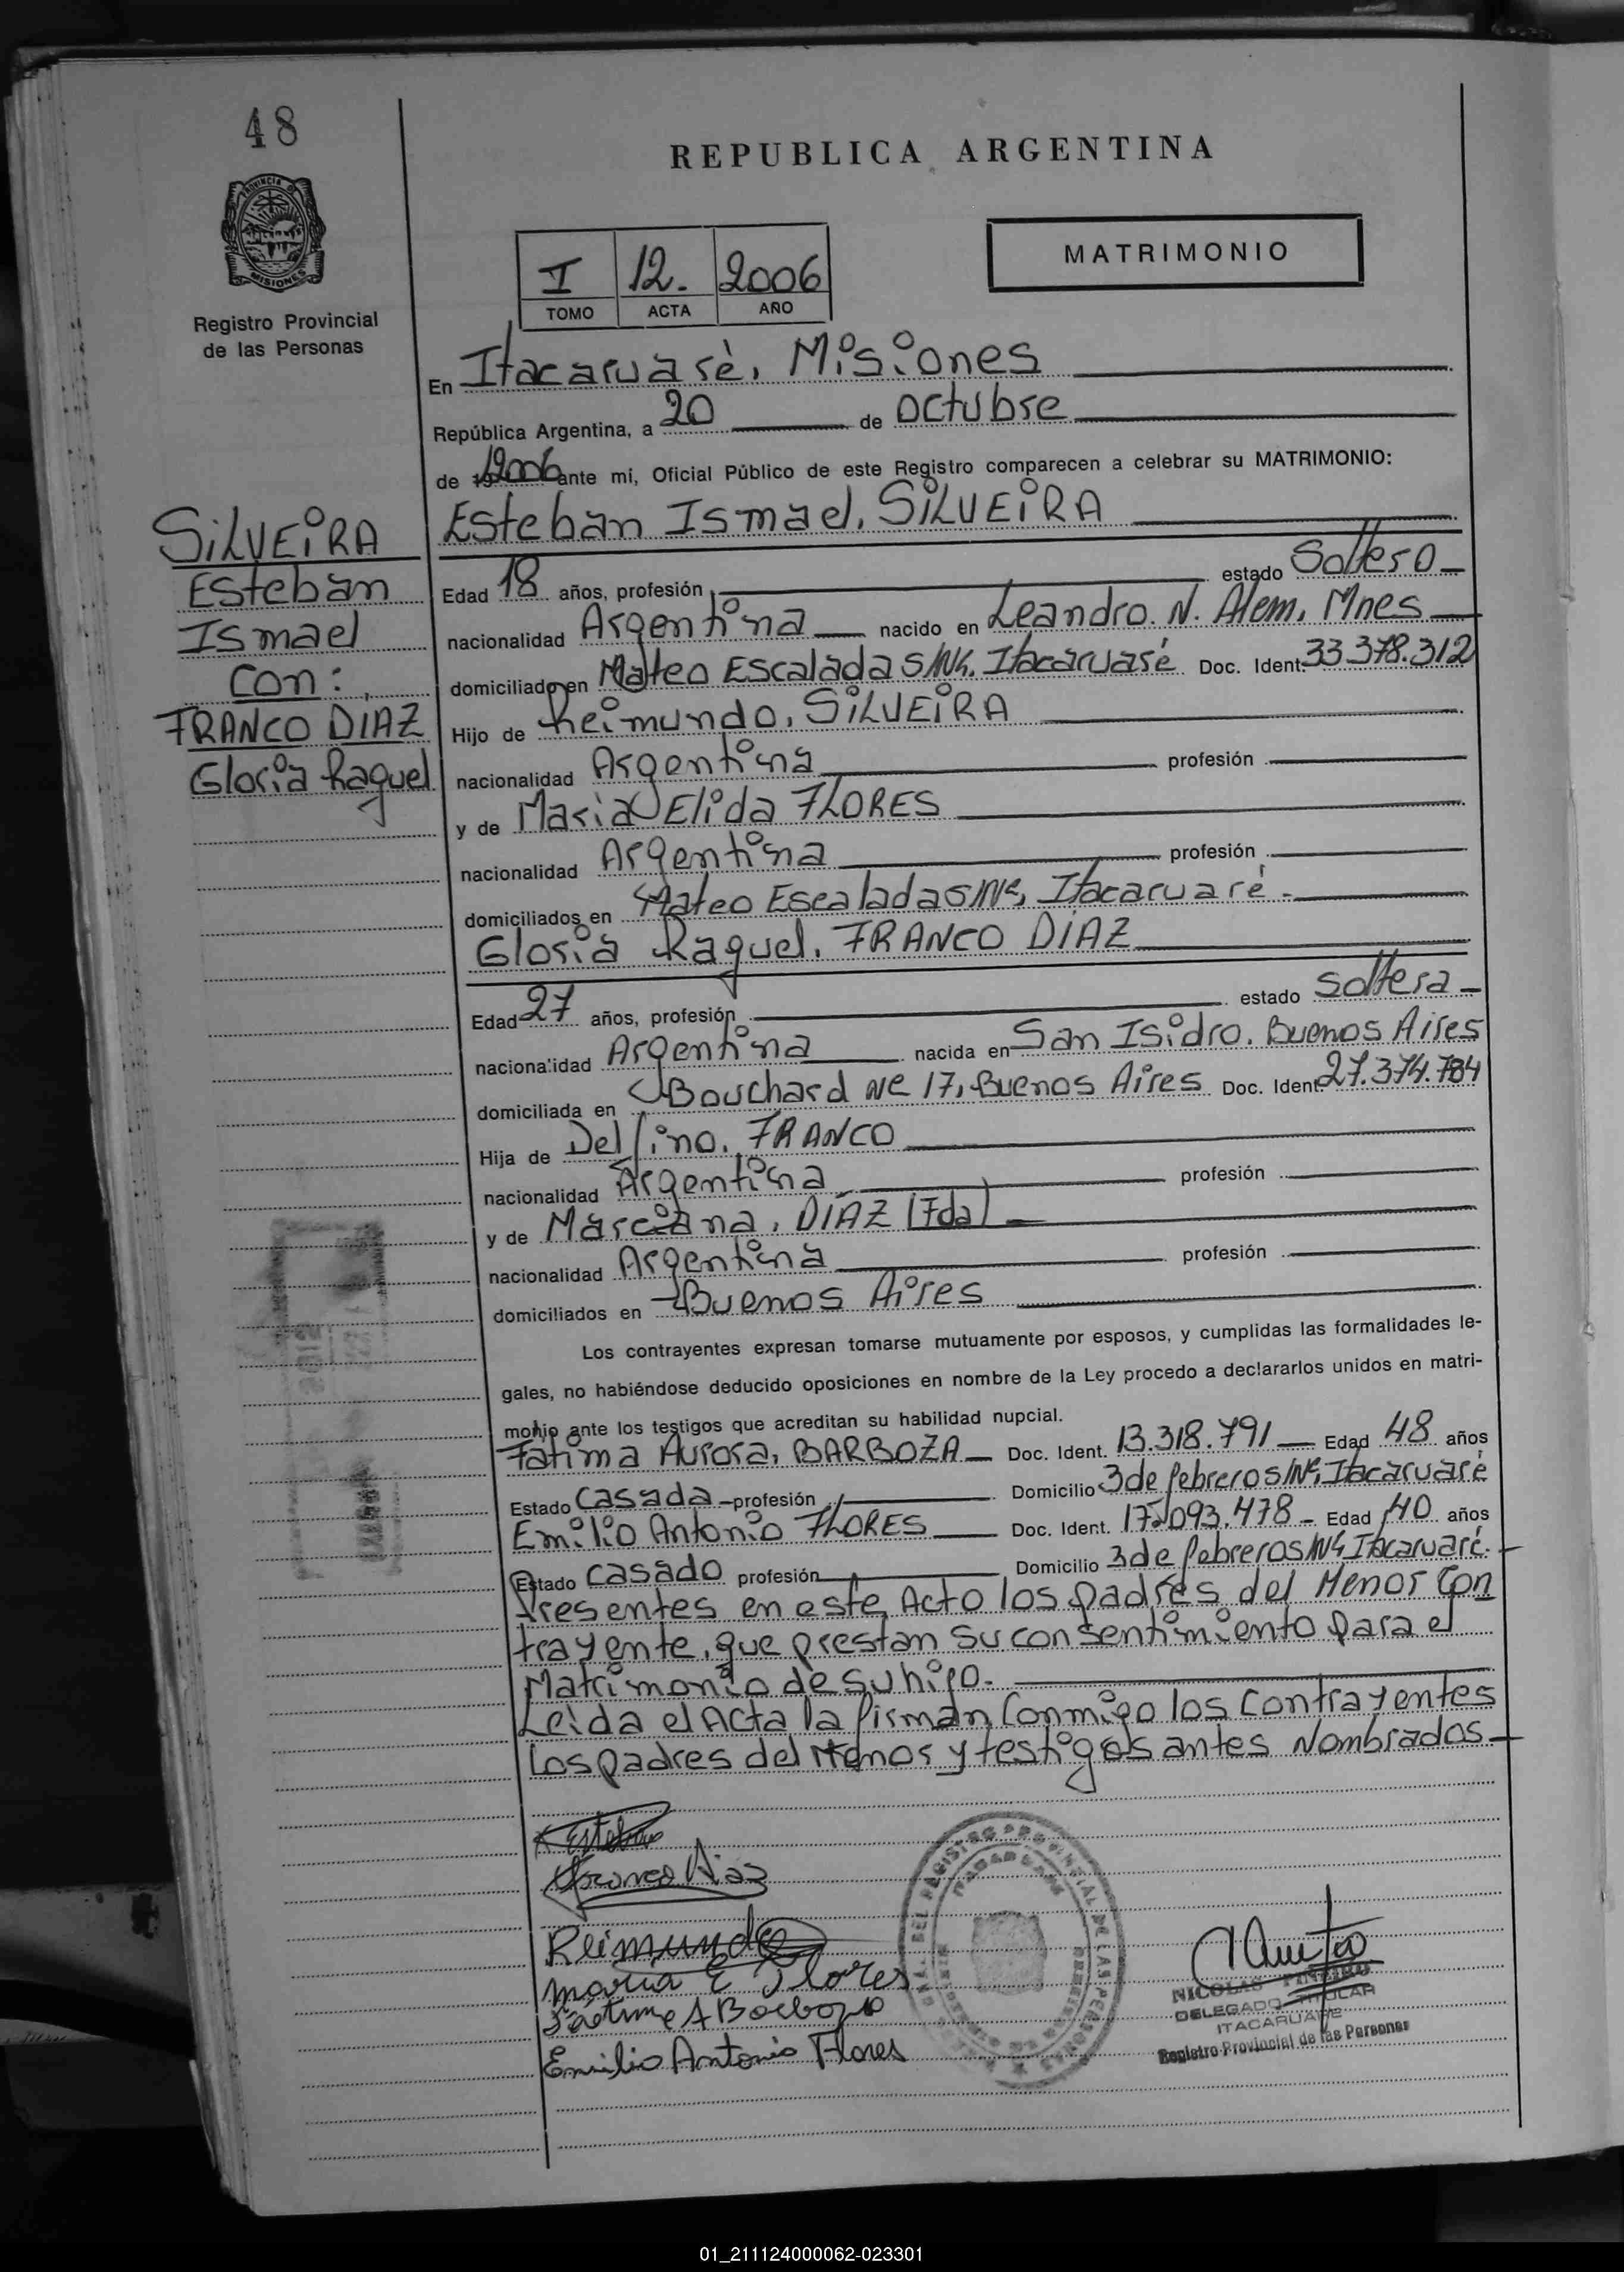 48
REPUBLICA ARGENTINA
PROVINCIA DE
MISIONES
Registro Provincial
de las Personas
MATRIMONIO
I 12. 2006
TOMO ACTA AÑO
En Itacaruaré, Misiones
República Argentina, a 20 de octubre
de 2006 ante mí, Oficial Público de este Registro comparecen a celebrar su MATRIMONIO:
SILVEIRA
Esteban
Ismael
con:
FRANCO DIAZ
Gloria Raquel
Esteban Ismael, SILVEIRA
Edad 18 años, profesión estado Soltero
nacionalidad Argentina nacido en Leandro. N. Alem, Mnes
domiciliado en Mateo Escalada S/Nº, Itacaruaré Doc. Ident. 33.378.312
Hijo de Reimundo, SILVEIRA
nacionalidad Argentina profesión
y de Maria Elida FLORES
nacionalidad Argentina profesión
domiciliados en Mateo Escalada S/Nº, Itacaruaré.
Gloria Raquel, FRANCO DIAZ
Edad 27 años, profesión estado soltera
nacionalidad Argentina nacida en San Isidro, Buenos Aires
domiciliada en Bouchard Nº 17, Buenos Aires Doc. Ident. 27.374.784
Hija de Delfino, FRANCO
nacionalidad Argentina profesión
y de Marciana, DIAZ (Fda)
nacionalidad Argentina profesión
domiciliados en Buenos Aires
Los contrayentes expresan tomarse mutuamente por esposos, y cumplidas las formalidades le-
gales, no habiéndose deducido oposiciones en nombre de la Ley procedo a declararlos unidos en matri-
monio ante los testigos que acreditan su habilidad nupcial.
Fatima Aurora, BARBOZA Doc. Ident. 13.318.791 Edad 48 años
Estado Casada profesión Domicilio 3 de febrero S/Nº, Itacaruaré
Emilio Antonio FLORES Doc. Ident. 17.093.478 Edad 40 años
Estado casado profesión Domicilio 3 de febrero S/Nº Itacaruaré.
Presentes en este Acto los padres del Menor Con
trayente, que prestan su consentimiento para el
Matrimonio de su hijo.
Leida el Acta la firman Conmigo los Contrayentes
Los padres del Menor y testigos antes Nombrados
Esteban
Franco Diaz
Reimundo
Maria E Flores
Fatima A Barboza
Emilio Antonio Flores
NICOLAS PIÑEIRO
DELEGADO TITULAR
ITACARUARE
Registro Provincial de las Personas
01_211124000062-023301